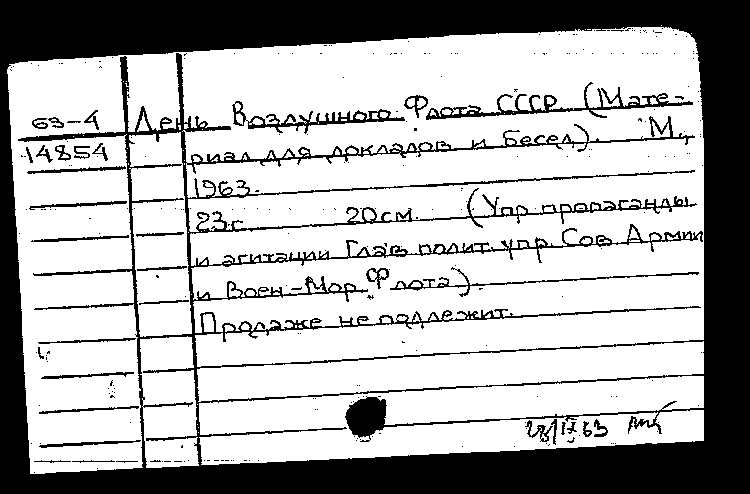 63-4 День Воздушного Флота СССР (Мате-
14854 риал для докладов и бесед). М.,
1963.
23с. 20см. (Упр пропаганды
и агитации Глав полит. упр. Сов Армии
и Воен-Мор. Флота).
Продаже не подлежит.
63